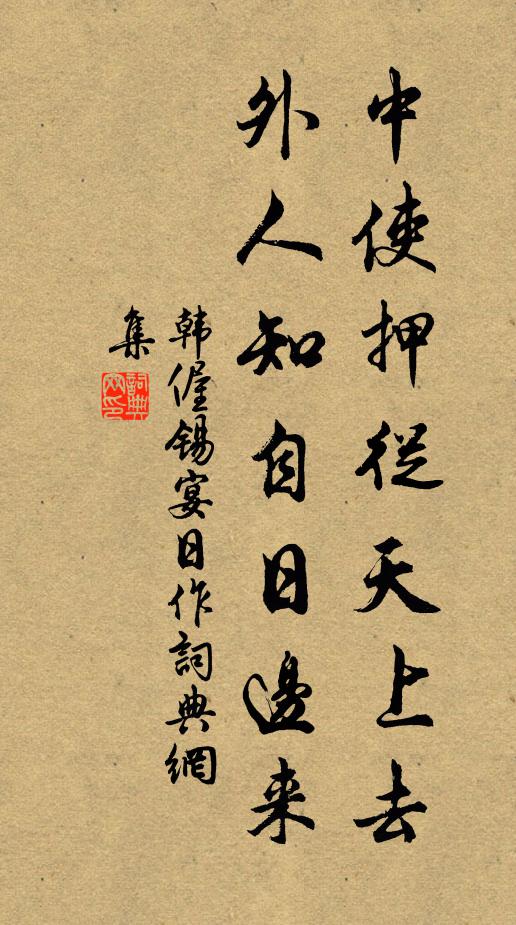 中使押從天上去
外人知自日邊来
韩偓锡宴日作詞典網
集
詞典網印